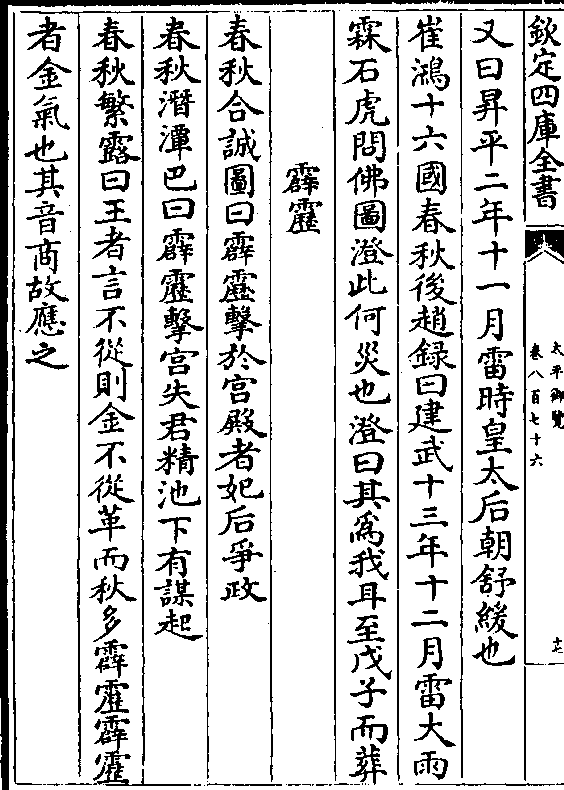 欽定四庫全書
太平御覽
卷八百七十六
十七
又曰昇平二年十一月雷時皇太后朝舒緩也
崔鴻十六國春秋後趙録曰建武十三年十二月雷大雨
霖石虎問佛圖澄此何災也澄曰其為我耳至戊子而葬
霹靂
春秋合誠圖曰霹靂擊於宫殿者妃后爭政
春秋潛潭巴曰霹靂擊宫失君精池下有謀起
春秋繁露曰王者言不從則金不從革而秋多霹靂霹靂
者金氣也其音商故應之